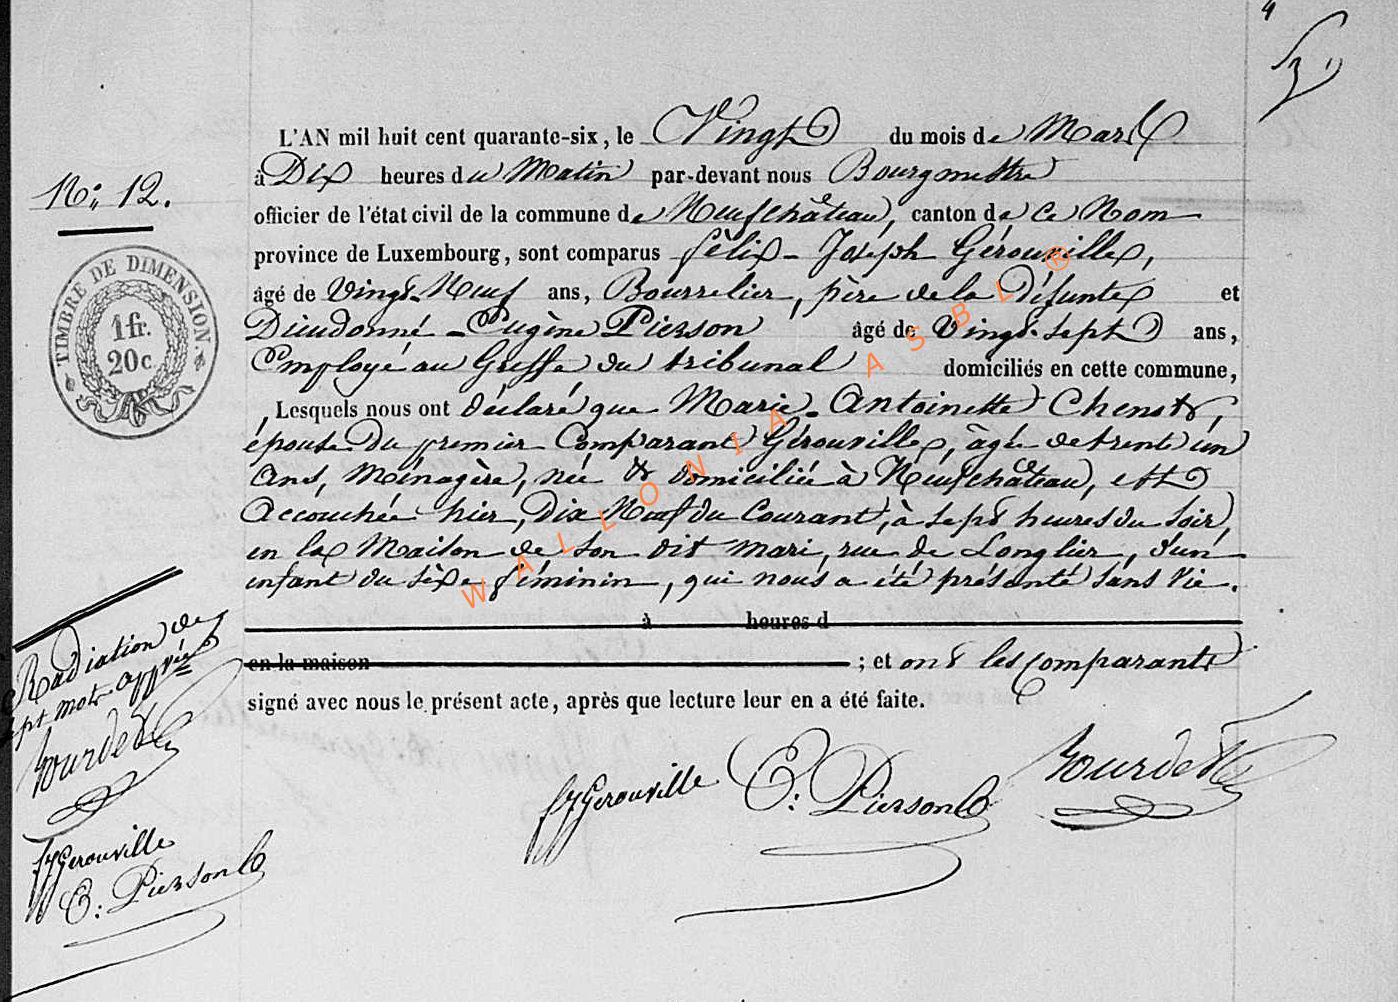 4
N° 12.
TIMBRE DE DIMENSION
1 fr.
20 c
L'AN mil huit cent quarante-six, le Vingt du mois de Mars
à Dix heures du Matin par-devant nous Bourgmestre
officier de l'état civil de la commune de Neufchâteau, canton de ce Nom
province de Luxembourg, sont comparus félix - Joséph Gérouville,
âgé de Vingt-Neuf ans, Bourrelier, père de la Défunte et
Dieudonné - Eugène Pierson âgé de Vingt-sept ans,
Employé au Greffe du tribunal domiciliés en cette commune,
Lesquels nous ont déclaré que Marie-Antoinette Chenot,
épouse du premier Comparant Gérouville, âgée de trente un
Ans, Ménagère, née & domiciliée à Neufchâteau, est
Accouchée hier, Dix Neuf du Courant, à sept heures du soir,
en la Maison de son dit mari, rue de Longlier, d'un
enfant du sèxe féminin, qui nous a été présenté sans Vie.
à heures d
en la maison ; et ont les comparants
signé avec nous le présent acte, après que lecture leur en a été faite.
Radiation de
sept mots approuvée
fJGerouville
E: Pierson
fJGerouville E: Pierson
WALLONIA ASBL ®